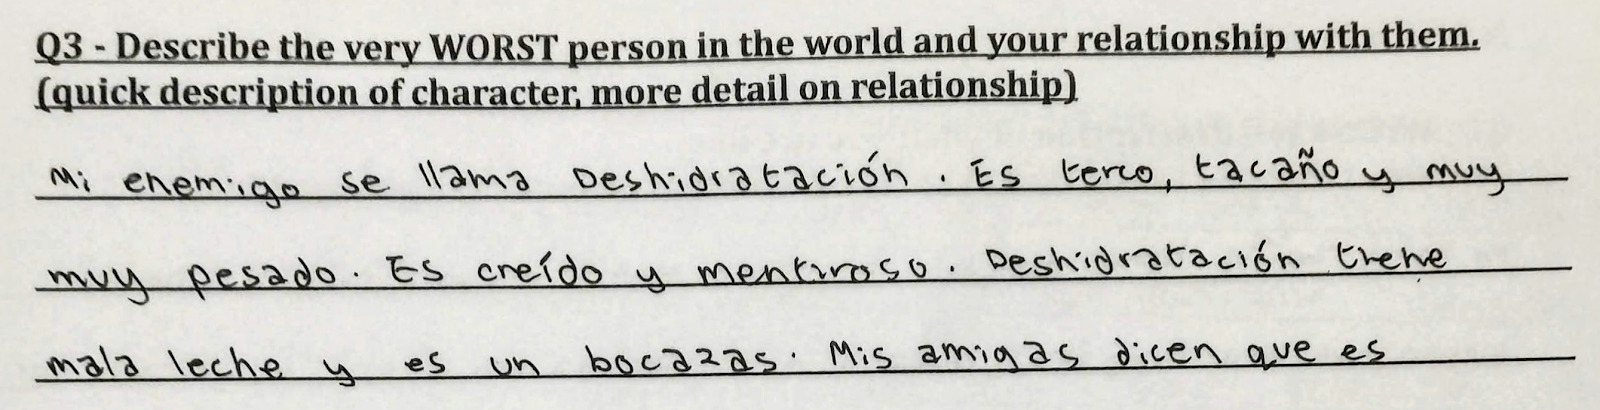 Q3 - Describe the very WORST person in the world and your relationship with them.
(quick description of character, more detail on relationship)
Mi enemigo se llama Deshidratación. Es terco, tacaño y muy
muy pesado. Es creído y mentiroso. Deshidratación tiene
mala leche y es un bocazas. Mis amigas dicen que es